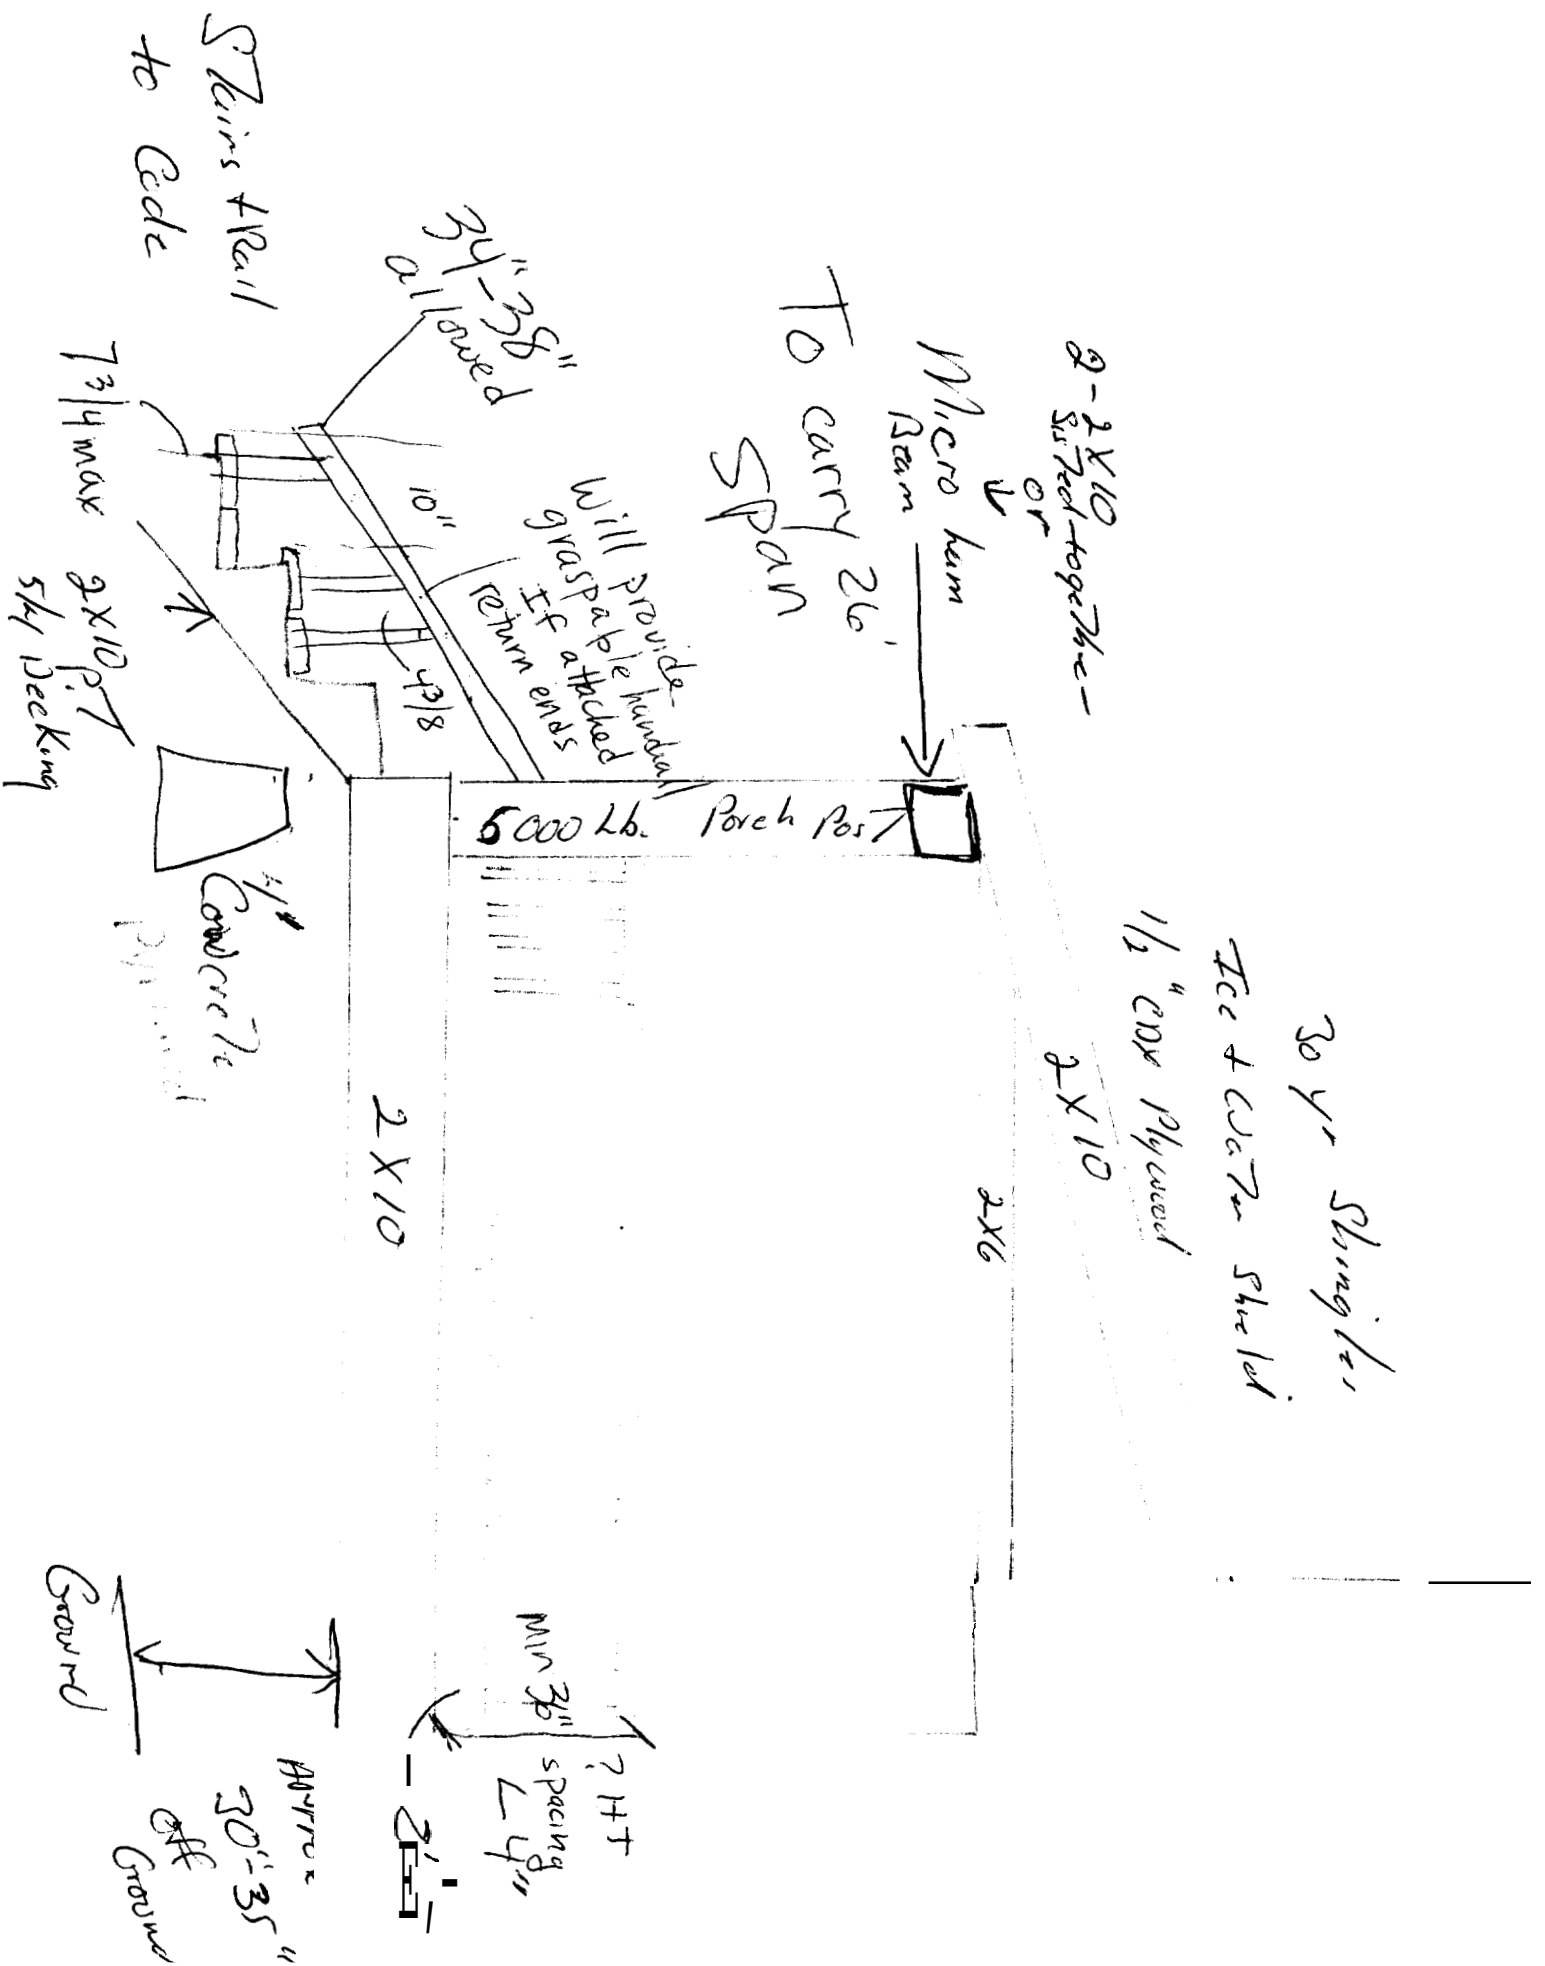 30 yr Shingles
Ice + Water Shield
1/2" CDX Plywood
2X10
2X6
2-2X10
SisTed together
or
Micro lam
Beam
To carry 26'
Span
5000 Lb. Porch PosT
34"-38"
allowed
10"
Will provide
graspable handrail
If attached
return ends
4 3/8
STairs + Rail
to Code
7 3/4 max
2X10 P.T
5/4 Decking
Concrete
2X10
Min 36"
? HT
spacing
∠ 4"
Approx
30"-35"
off
Ground
Ground